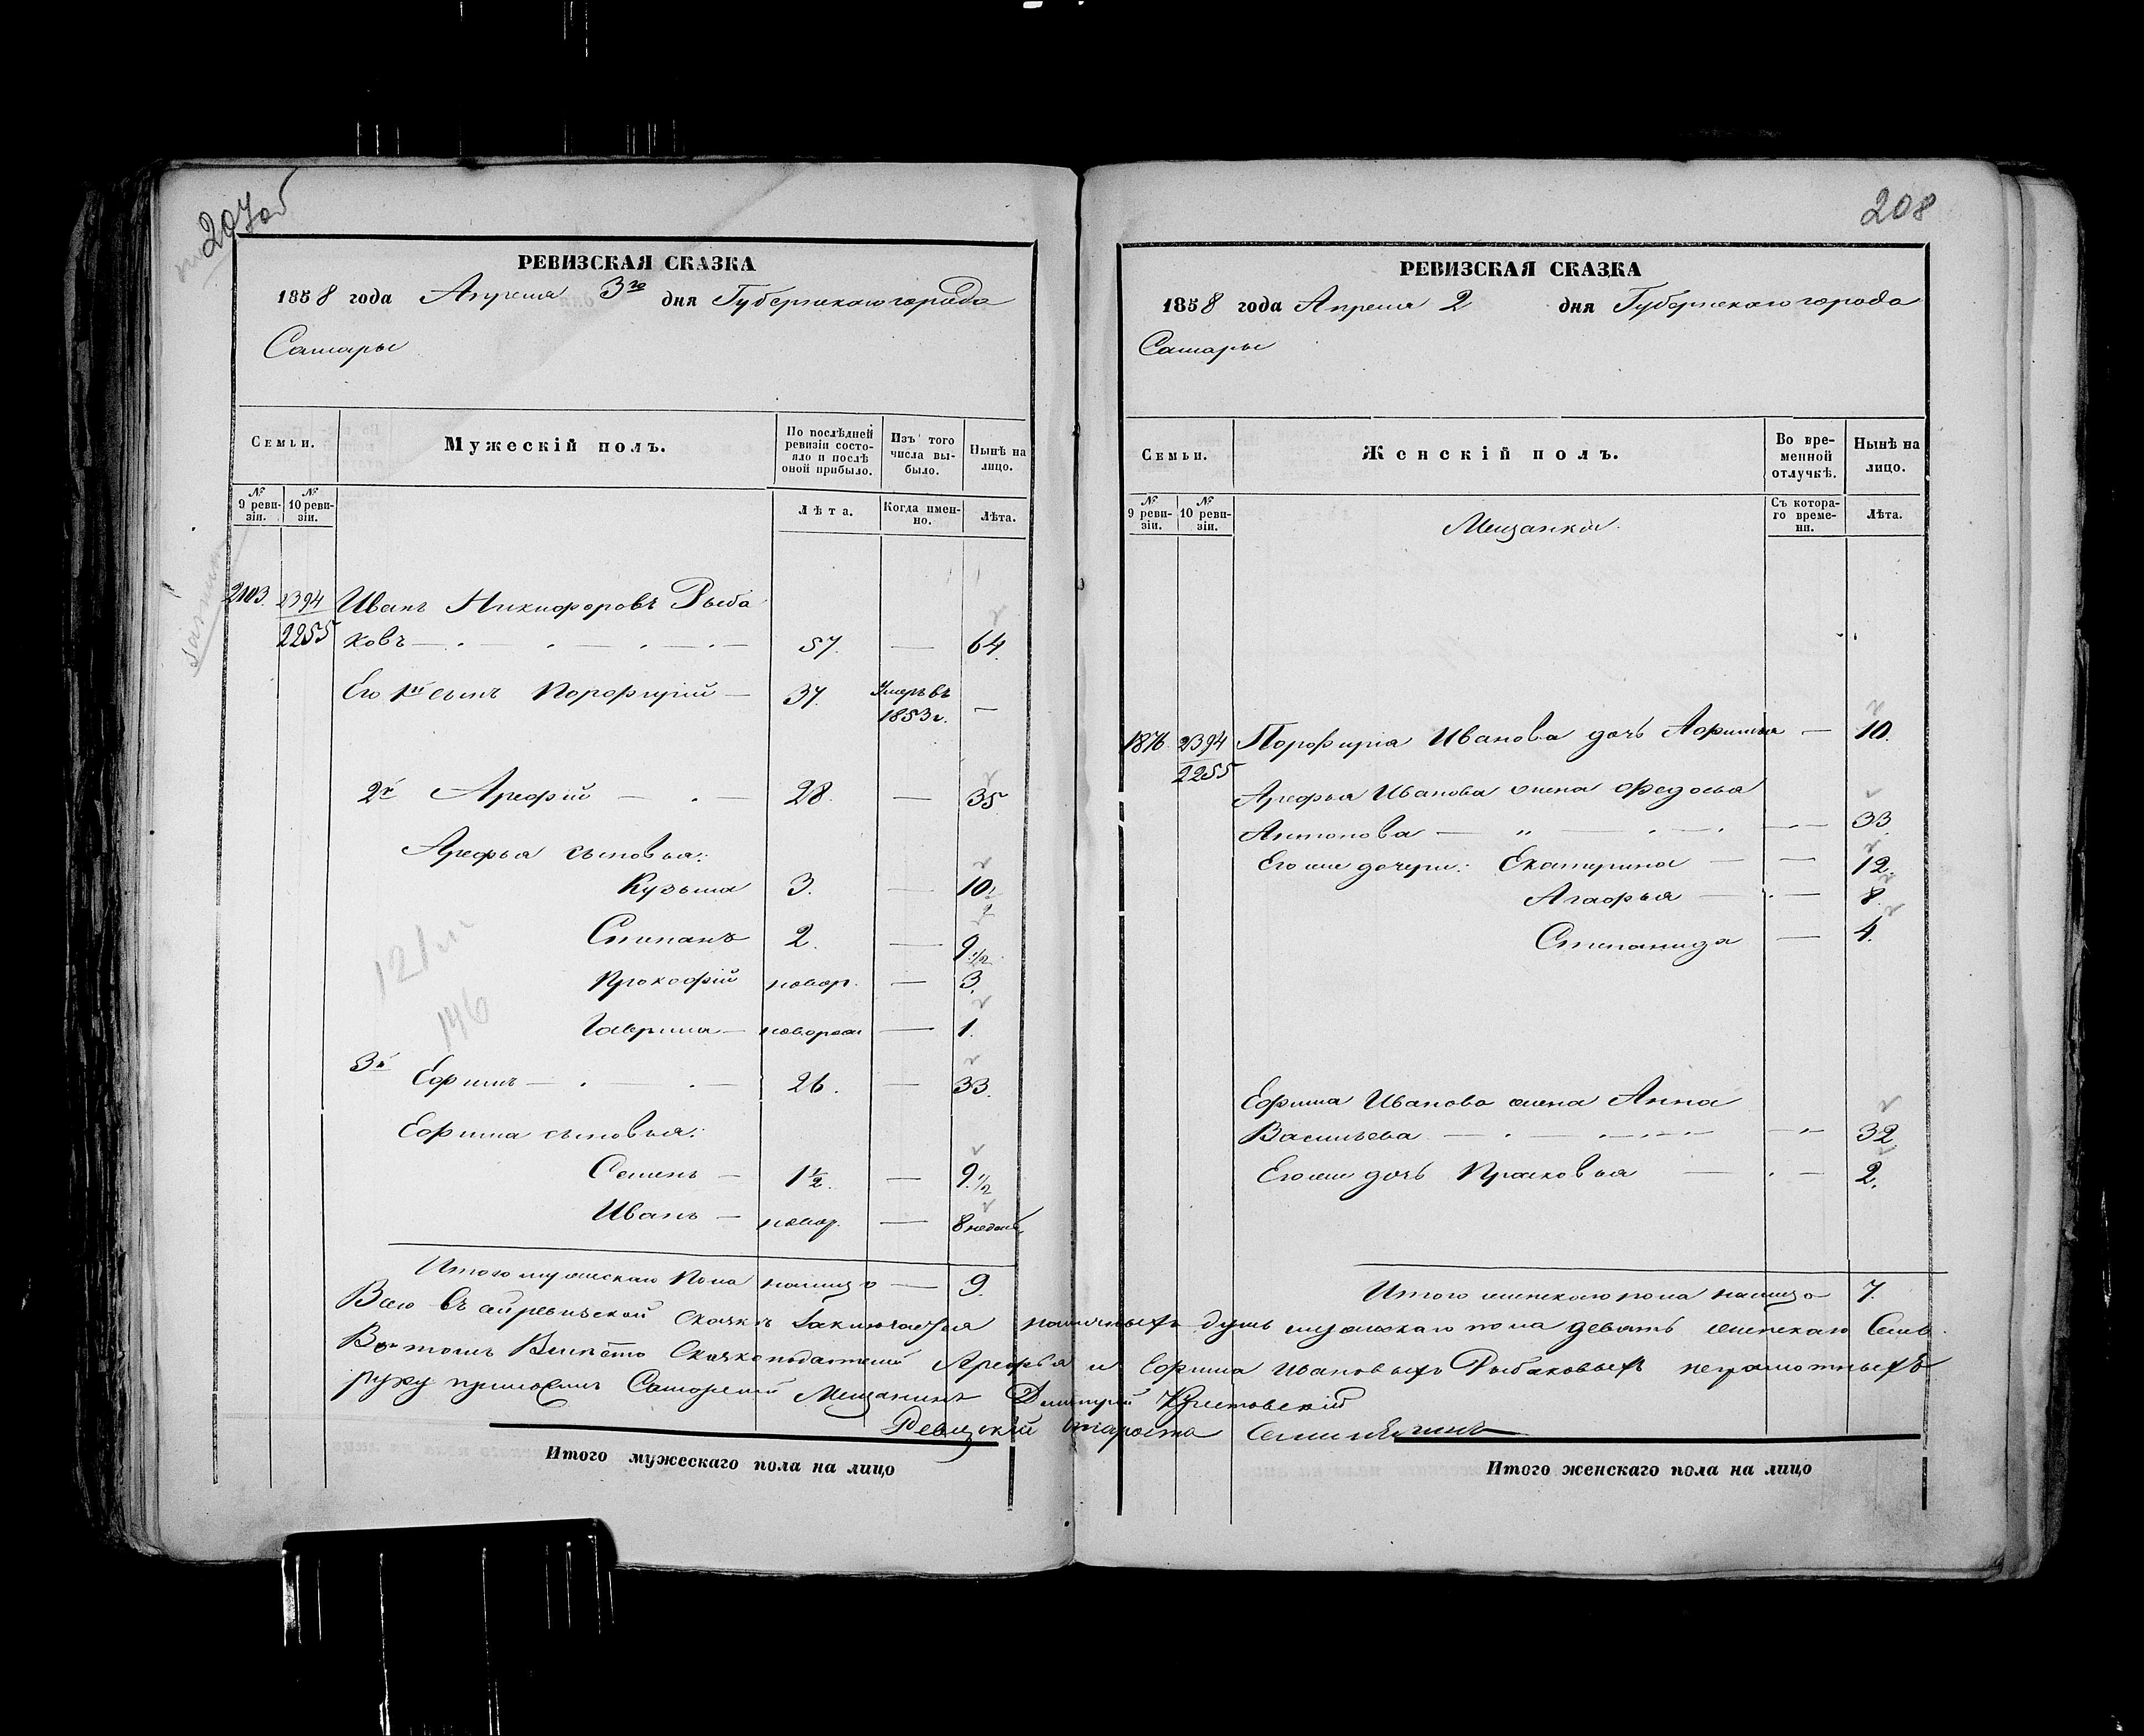 207об
РЕВИЗСКАЯ СКАЗКА
1858 года Апреля 3го дня Губернскаго города
Самары
Семьи.
Мужескій полъ.
По послѣдней ревизіи состояло и послѣ оной прибыло.
Изъ того числа выбыло.
Нынѣ на лицо.
№ 9 ревизіи.
№ 10 ревизіи.
Лѣта.
Когда именно.
Лѣта.
2103. 2394 Иванъ Никифоровъ Рыба
2255 ковъ — 57. — 64.
Его 1й сынъ Порофирій — 37. Умеръ въ 1853 г. —
2й Арефій — 28. — 35
Арефья сыновья:
Кузьма 3. — 10 1/2
Степанъ 2. — 9 1/2
Прокофій новор. — 3.
Гаврила — новорож — 1.
3й Ефимъ — 26. — 33.
Ефима сыновья:
Семенъ — 1 1/2. — 9 1/2
Иванъ — новор. — 8 недель
121
146
Итого мужескаго пола налицо — 9.
208
РЕВИЗСКАЯ СКАЗКА
1858 года Апреля 2 дня Губернскаго города
Самары
Семьи.
Женскій полъ.
Во временной отлучкѣ.
Нынѣ на лицо.
№ 9 ревизіи.
№ 10 ревизіи.
Мещанки
Съ котораго времени.
Лѣта.
1876 2394 Порофирія Иванова дочь Афимья — 10.
2255
Арефья Иванова жена Федосья
Антонова — 33
Его же дочери: Екатерина — 12.
Агафья — 8.
Степанида — 4.
Ефима Иванова жена Анна
Васильева — 32.
Его же дочь Прасковья — 2.
Итого женскаго пола налицо 7.
Всего въ сей ревизской сказкѣ заключается наличныхъ душъ мужескаго пола девять женскаго Семь.
Въ томъ Вместо Сказкоподателей Арефья и Ефима Ивановыхъ Рыбаковыхъ неграмотныхъ
руку приложилъ Самарскій Мещанинъ Дмитрій
Ревизскій Староста
Итого мужескаго пола на лицо
Итого женскаго пола на лицо